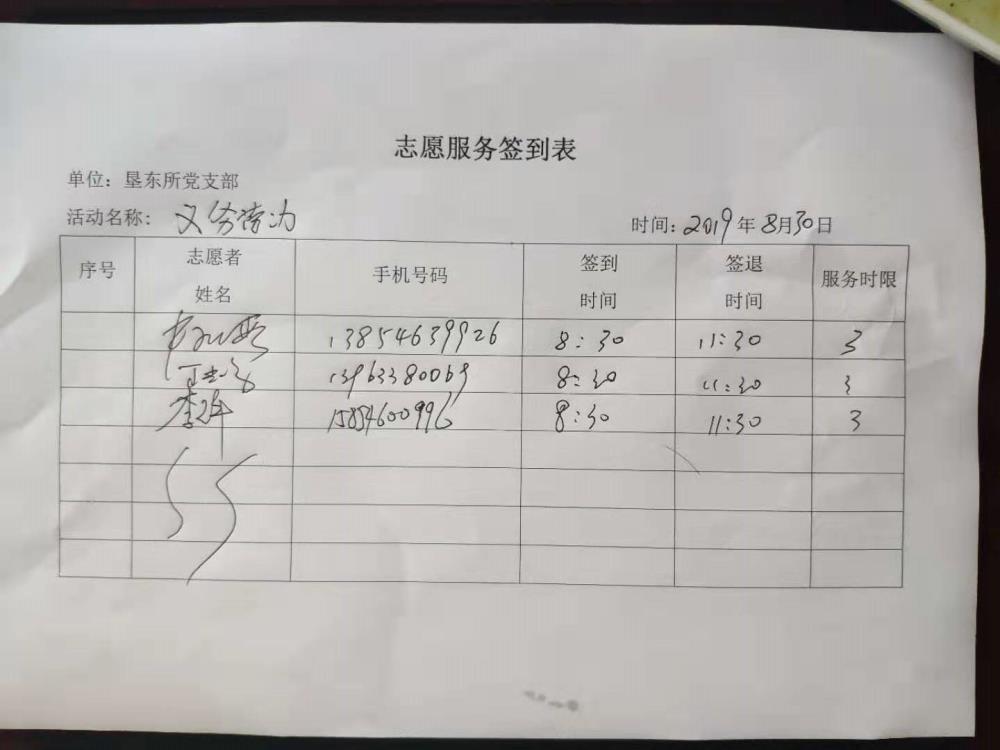 志愿服务签到表
单位：垦东所党支部
活动名称：义务劳动
时间：2019年8月30日
序号 志愿者姓名 手机号码 签到时间 签退时间 服务时限
13854639926 8:30 11:30 3
13963380069 8:30 11:30 3
李 15854600996 8:30 11:30 3